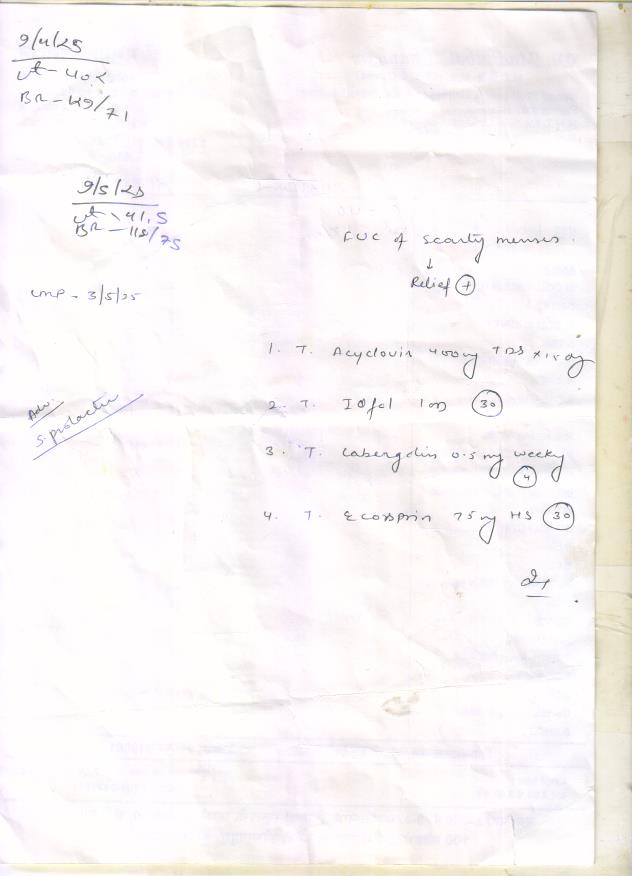 9/4/25
wt - 40.2
BP - 129/71
9/5/25
wt - 41.5
BP - 118/75
FUC of scanty menses.
↓
Relief +
LMP - 3/5/25
1. T. Acyclovir 400mg TDS x 15 dy
Adv.
S. prolactin
2. T. 30
3. T. Cabergolin 0.5 mg weekly
4
4. T. Ecosprin 75 mg HS 30